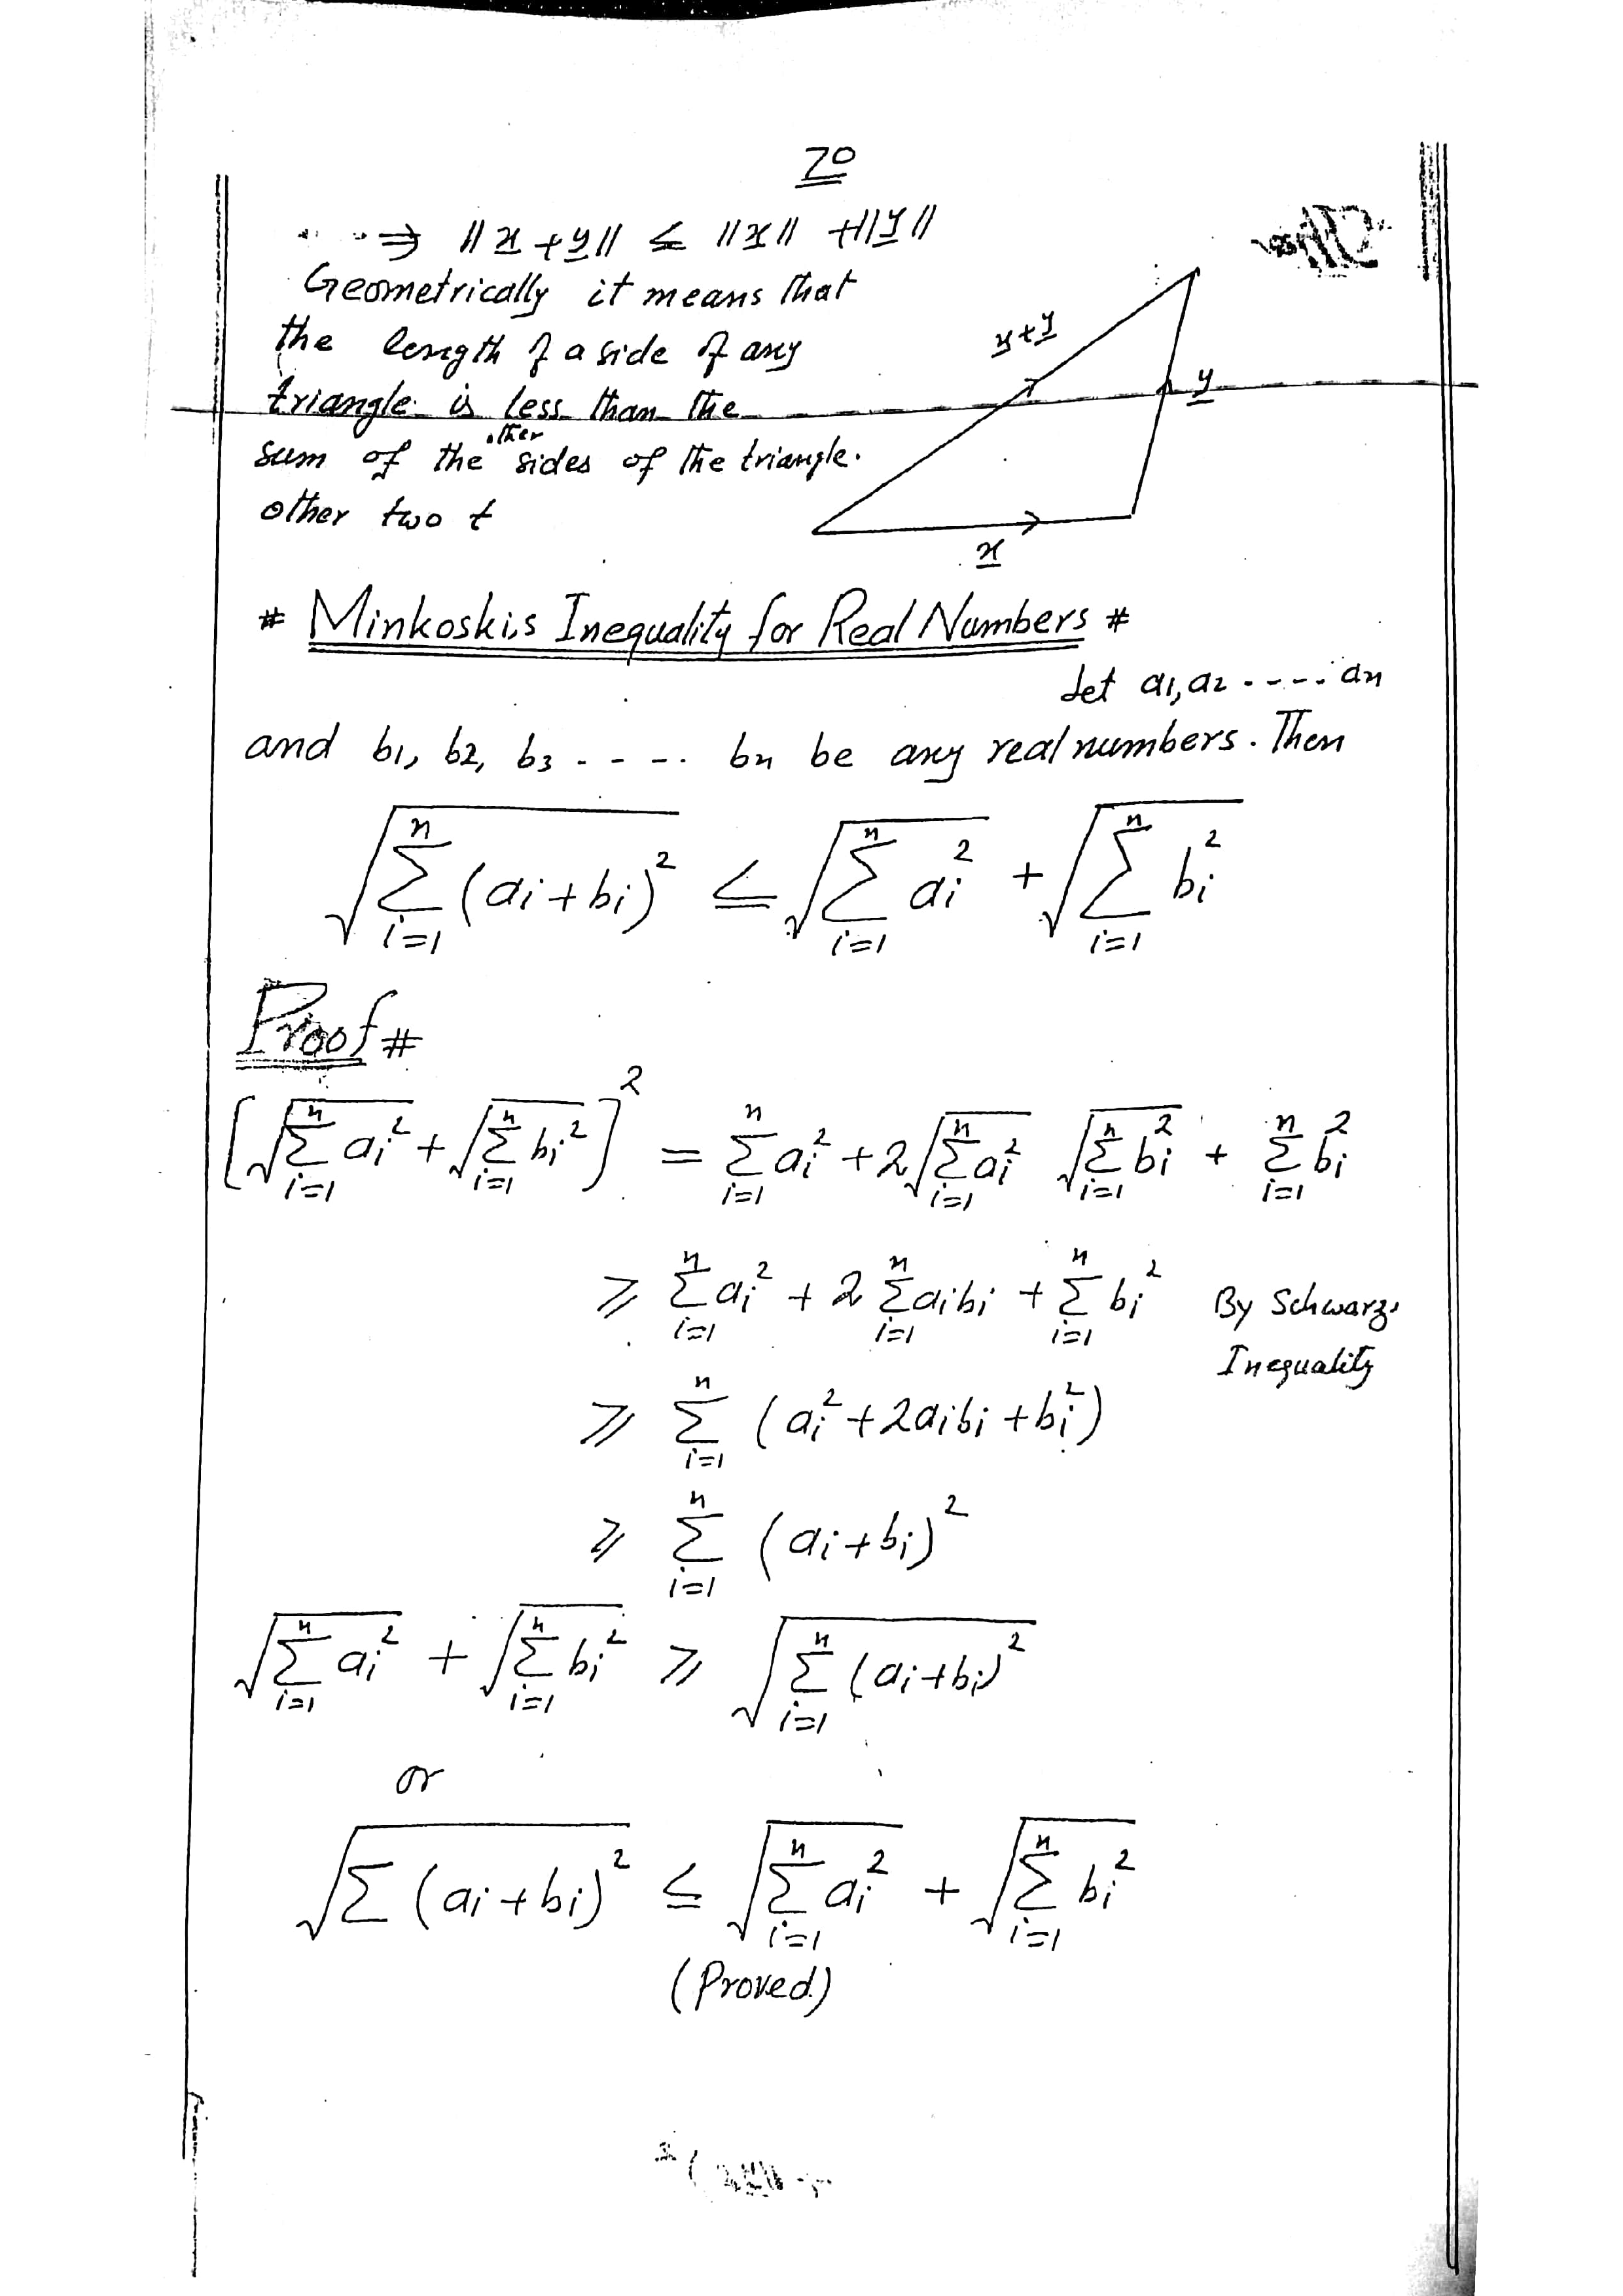 70
⇒ ||x + y|| ≤ ||x|| + ||y||
Geometrically it means that
the length of a side of any
triangle is less than the
other
sum of the sides of the triangle.
other two t
x+y
y
x
# Minkoskis Inequality for Real Numbers #
Let a1, a2 ..... an
and b1, b2, b3 ..... bn be any real numbers. Then
√(∑_{i=1}^{n} (ai+bi)²) ≤ √(∑_{i=1}^{n} ai²) + √(∑_{i=1}^{n} bi²)
Proof #
[√(∑_{i=1}^{n} ai²) + √(∑_{i=1}^{n} bi²)]² = ∑_{i=1}^{n} ai² + 2√(∑_{i=1}^{n} ai²) √(∑_{i=1}^{n} bi²) + ∑_{i=1}^{n} bi²
≥ ∑_{i=1}^{n} ai² + 2 ∑_{i=1}^{n} aibi + ∑_{i=1}^{n} bi² By Schwarz,
Inequality
≥ ∑_{i=1}^{n} (ai² + 2aibi + bi²)
≥ ∑_{i=1}^{n} (ai+bi)²
√(∑_{i=1}^{n} ai²) + √(∑_{i=1}^{n} bi²) ≥ √(∑_{i=1}^{n} (ai+bi)²)
or
√(∑ (ai+bi)²) ≤ √(∑_{i=1}^{n} ai²) + √(∑_{i=1}^{n} bi²)
(Proved)